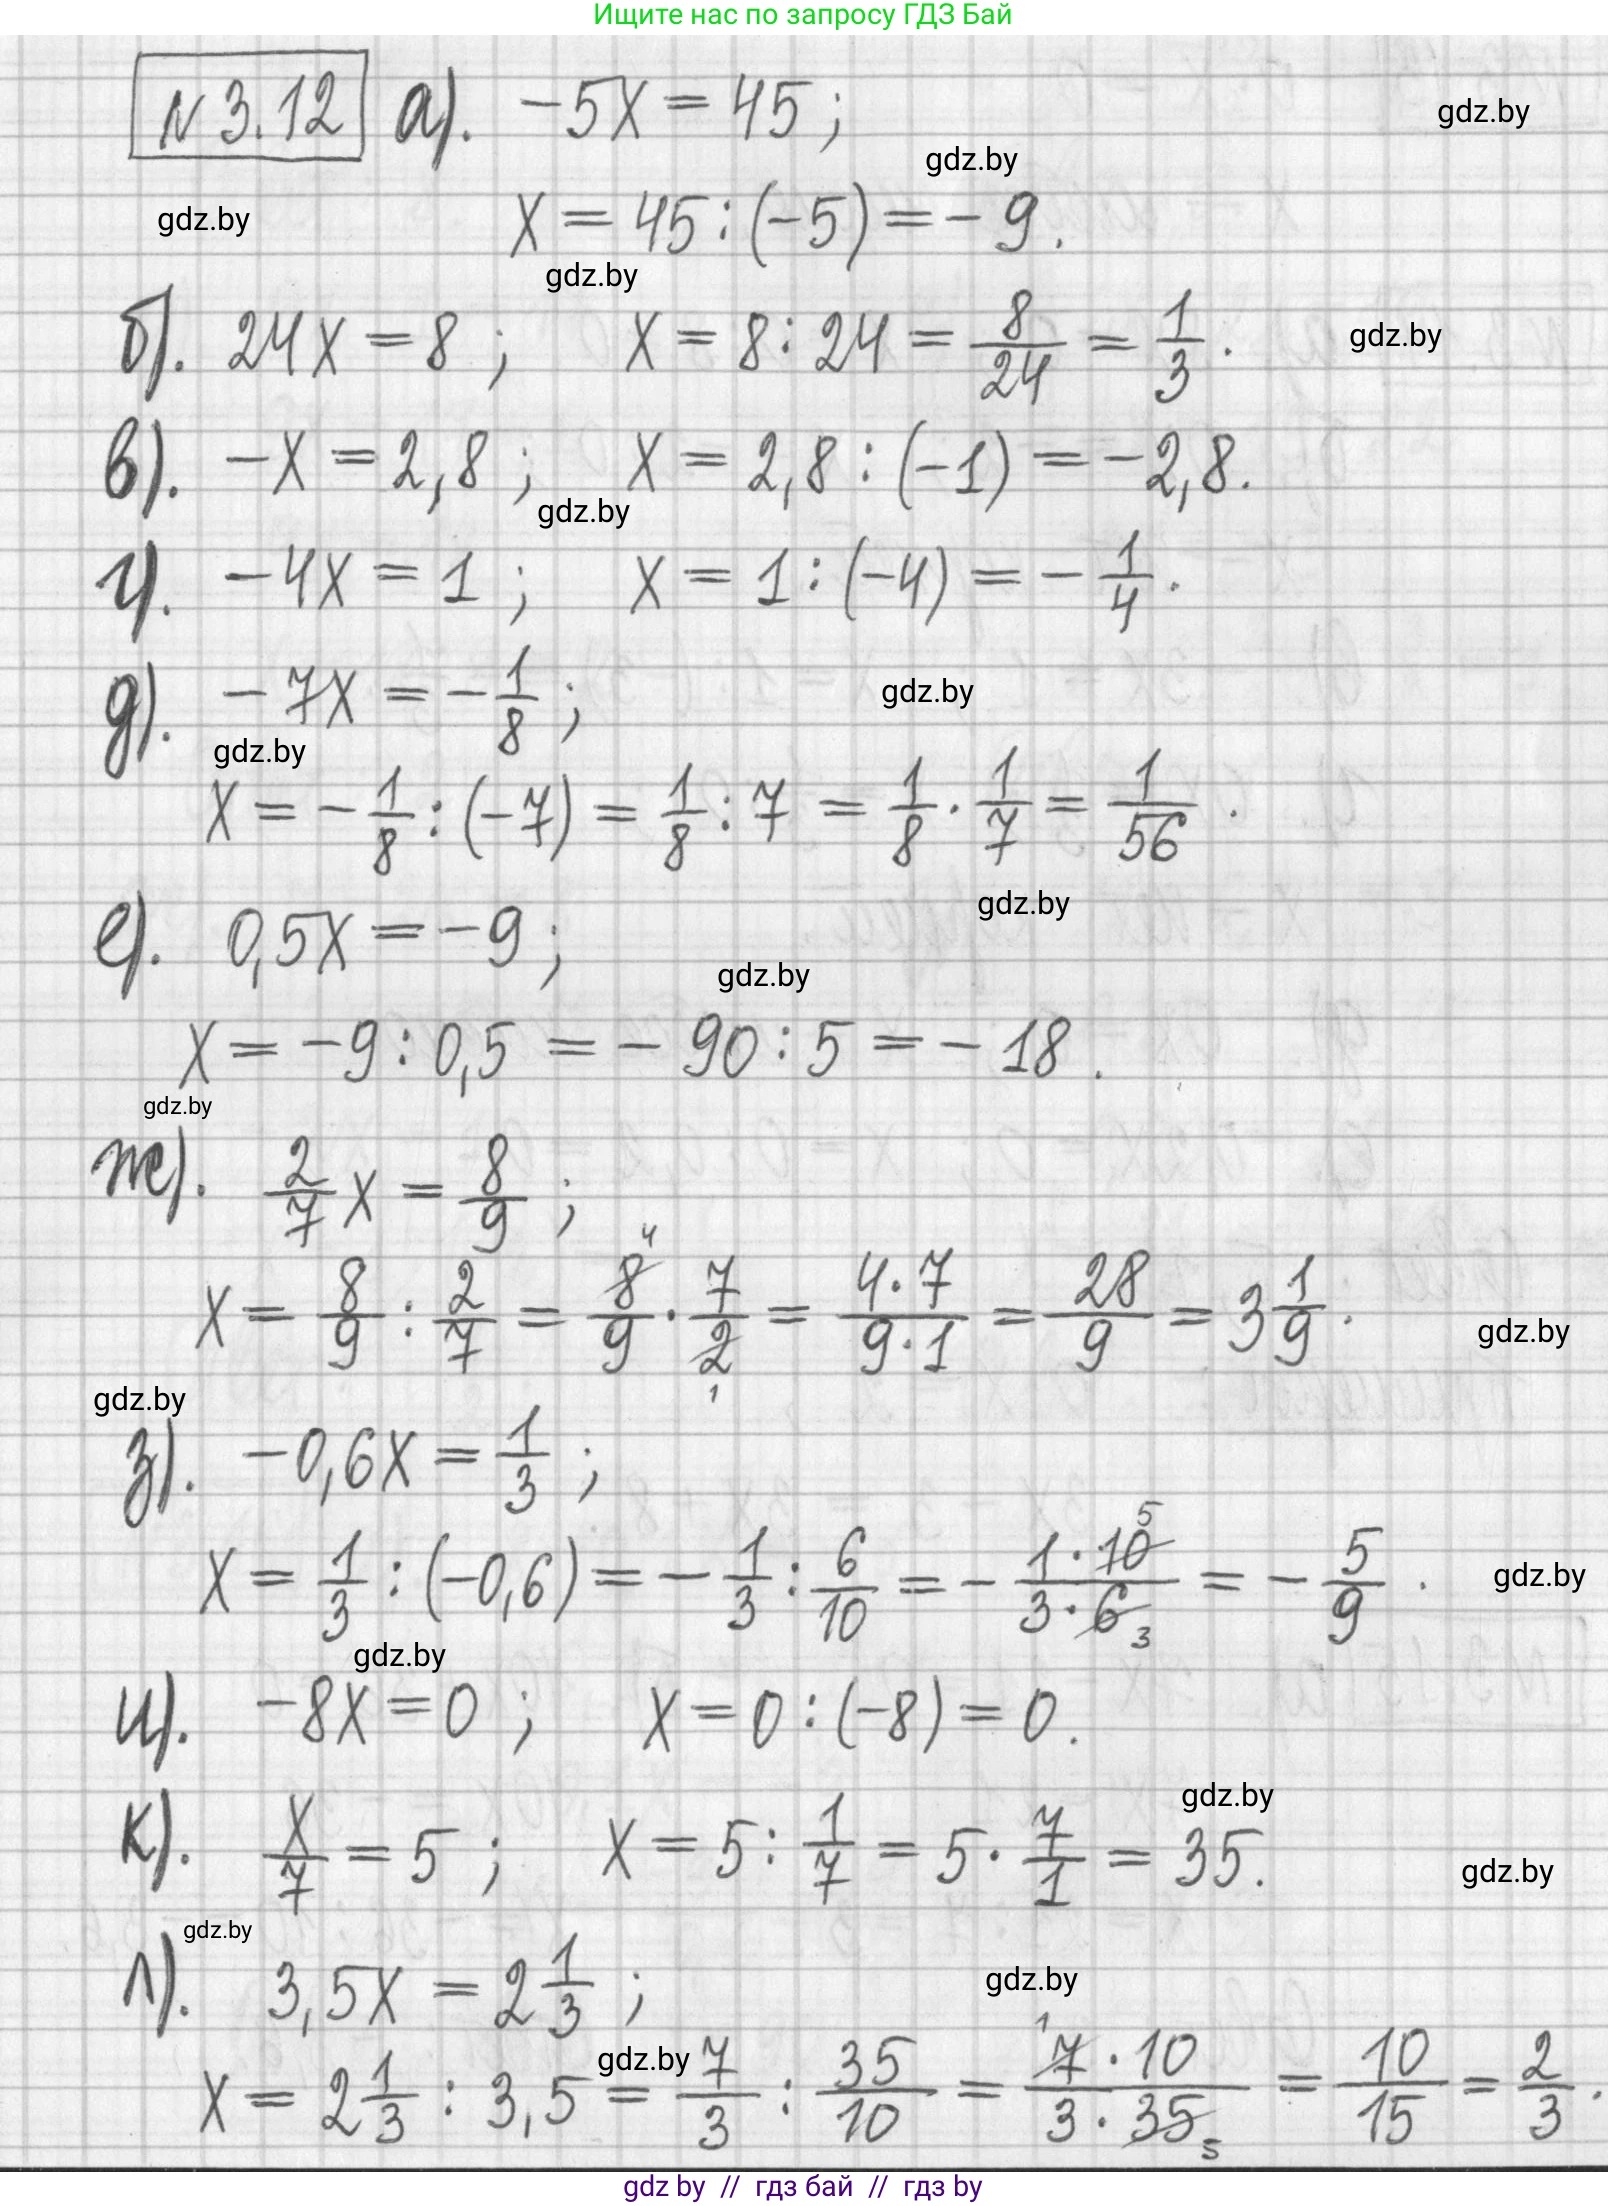 Ищите нас по запросу ГДЗ Бай
N 3.12 а). -5x = 45;
gdz.by
gdz.by
gdz.by
x = 45 : (-5) = -9.
gdz.by
б). 24x = 8; x = 8 : 24 = 8/24 = 1/3.
gdz.by
в). -x = 2,8; x = 2,8 : (-1) = -2,8.
gdz.by
г). -4x = 1; x = 1 : (-4) = -1/4.
д). -7x = -1/8;
gdz.by
gdz.by
x = -1/8 : (-7) = 1/8 : 7 = 1/8 · 1/7 = 1/56.
gdz.by
е). 0,5x = -9;
gdz.by
x = -9 : 0,5 = -90 : 5 = -18.
gdz.by
ж). 2/7 x = 8/9;
x = 8/9 : 2/7 = 8/9 · 7/2 = 4·7/9·1 = 28/9 = 3 1/9.
4
1
gdz.by
gdz.by
з). -0,6x = 1/3;
x = 1/3 : (-0,6) = -1/3 : 6/10 = -1·10/3·6 = -5/9.
5
3
gdz.by
gdz.by
и). -8x = 0; x = 0 : (-8) = 0.
gdz.by
к). x/7 = 5; x = 5 : 1/7 = 5 · 7/1 = 35.
gdz.by
gdz.by
л). 3,5x = 2 1/3;
gdz.by
gdz.by
x = 2 1/3 : 3,5 = 7/3 : 35/10 = 7·10/3·35 = 10/15 = 2/3.
1
5
gdz by // гдз бай // гдз by